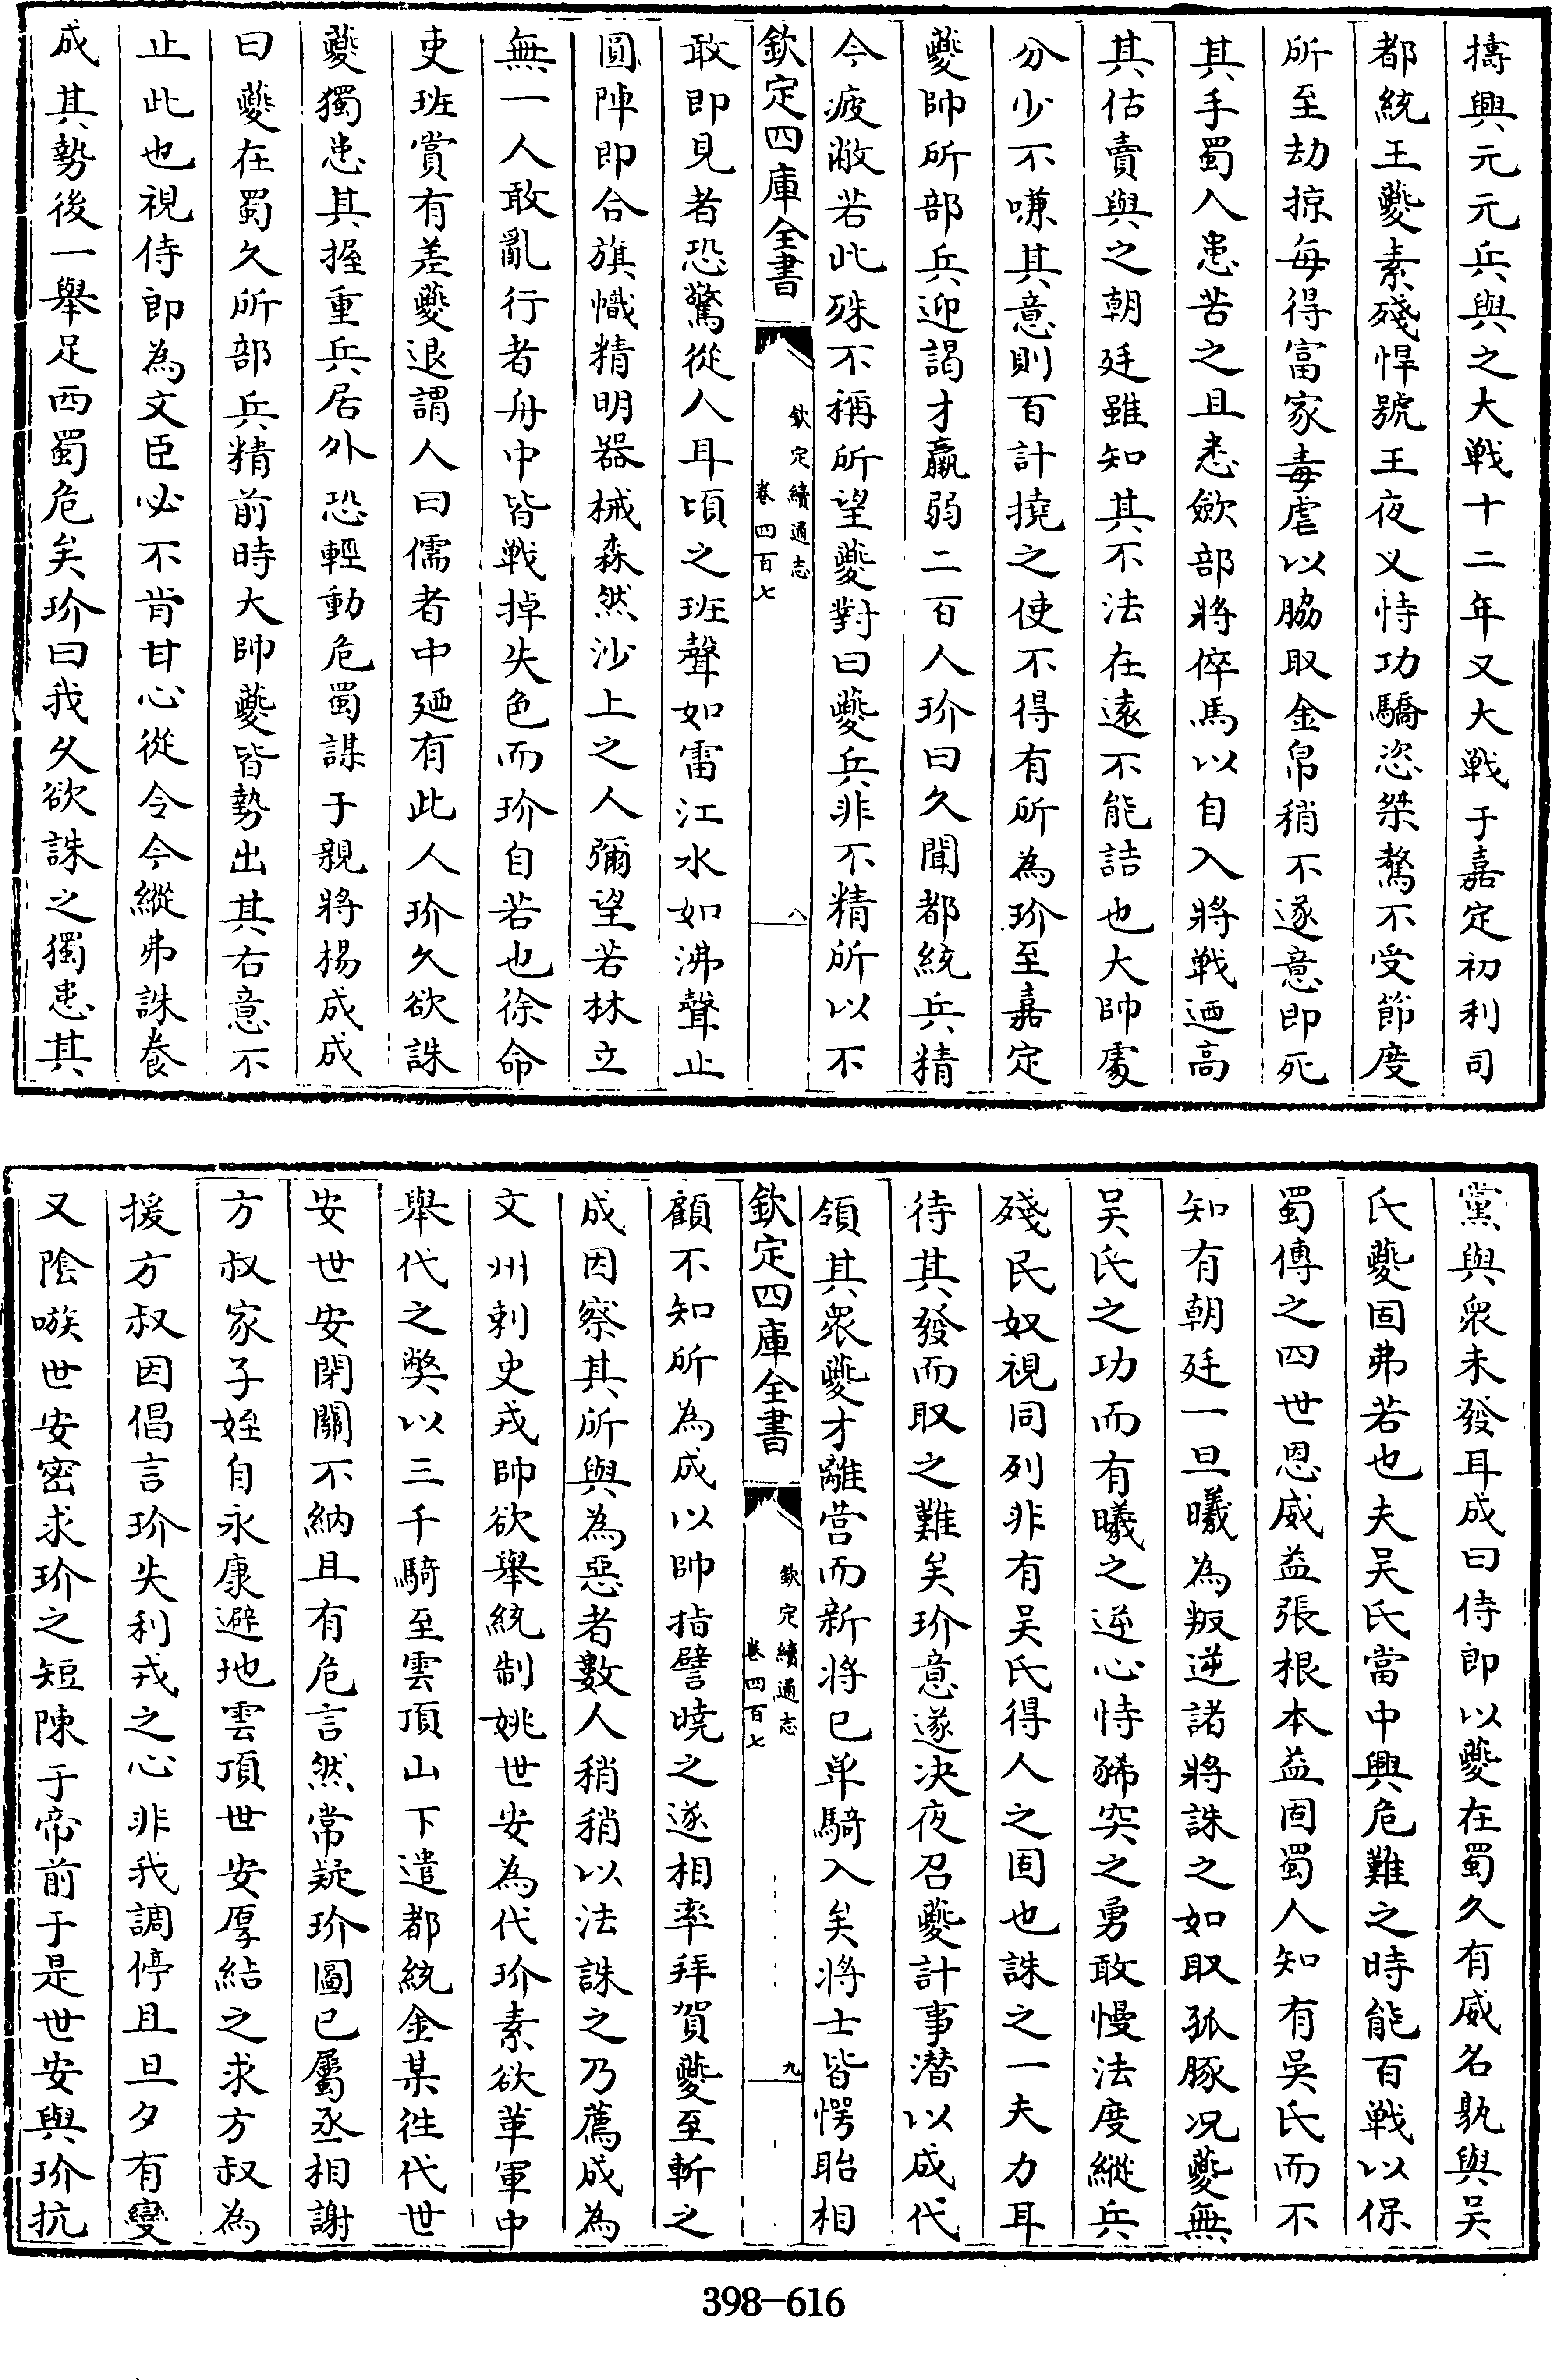 擣興元元兵與之大戰十二年又大戰于嘉定初利司
都統王夔素殘悍號王夜义恃功驕恣桀驁不受節度
所至劫掠每得富家毒虐以脇取金帛稍不遂意即死
其手蜀人患苦之且悉歛部將倅馬以自入將戰迺高
其估賣與之朝廷雖知其不法在遠不能詰也大帥處
分少不嗛其意則百計撓之使不得有所為玠至嘉定
夔帥所部兵迎謁才羸弱二百人玠曰久聞都統兵精
今疲敝若此殊不稱所望夔對曰夔兵非不精所以不
欽定四庫全書
欽定續通志
卷四百七
八
敢即見者恐驚從人耳頃之班聲如雷江水如沸聲止
圓陣即合旗幟精明器械森然沙上之人彌望若林立
無一人敢亂行者舟中皆戰掉失色而玠自若也徐命
吏班賞有差夔退謂人曰儒者中廼有此人玠久欲誅
夔獨患其握重兵居外恐輕動危蜀謀于親將楊成成
曰夔在蜀久所部兵精前時大帥夔皆勢出其右意不
止此也視侍郎為文臣必不肯甘心從令今縱弗誅養
成其勢後一舉足西蜀危矣玠曰我久欲誅之獨患其
黨與衆未發耳成曰侍郎以夔在蜀久有威名孰與吴
氏夔固弗若也夫吴氏當中興危難之時能百戰以保
蜀傳之四世恩威益張根本益固蜀人知有吳氏而不
知有朝廷一旦曦為叛逆諸將誅之如取孤豚况夔無
吴氏之功而有曦之逆心恃豨突之勇敢慢法度縱兵
殘民奴視同列非有吴氏得人之固也誅之一夫力耳
待其發而取之難矣玠意遂决夜召夔計事潛以成代
領其衆夔才離營而新將已单騎入矣將士皆愕眙相
欽定四庫全書
欽定續通志
卷四百七
九
顧不知所為成以帥指譬曉之遂相率拜賀夔至斬之
成因察其所與為惡者數人稍稍以法誅之乃薦成為
文州刺史戎帥欲舉統制姚世安為代玠素欲革軍中
舉代之獘以三千騎至雲頂山下遣都統金某徃代世
安世安閉關不納且有危言然常疑玠圖已屬丞相謝
方叔家子姪自永康避地雲頂世安厚結之求方叔為
援方叔因倡言玠失利戎之心非我調停且旦夕有變
又陰嗾世安密求玠之短陳于帝前于是世安與玠抗
398-616